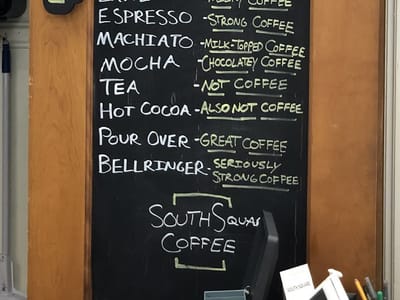 COFFEE
ESPRESSO - STRONG COFFEE
MACHIATO - MILK-TOPPED COFFEE
MOCHA - CHOCOLATEY COFFEE
TEA - NOT COFFEE
HOT COCOA - ALSO NOT COFFEE
POUR OVER - GREAT COFFEE
BELLRINGER - SERIOUSLY
STRONG COFFEE
SOUTH SQUAR
COFFEE
SOUTH SQUARE